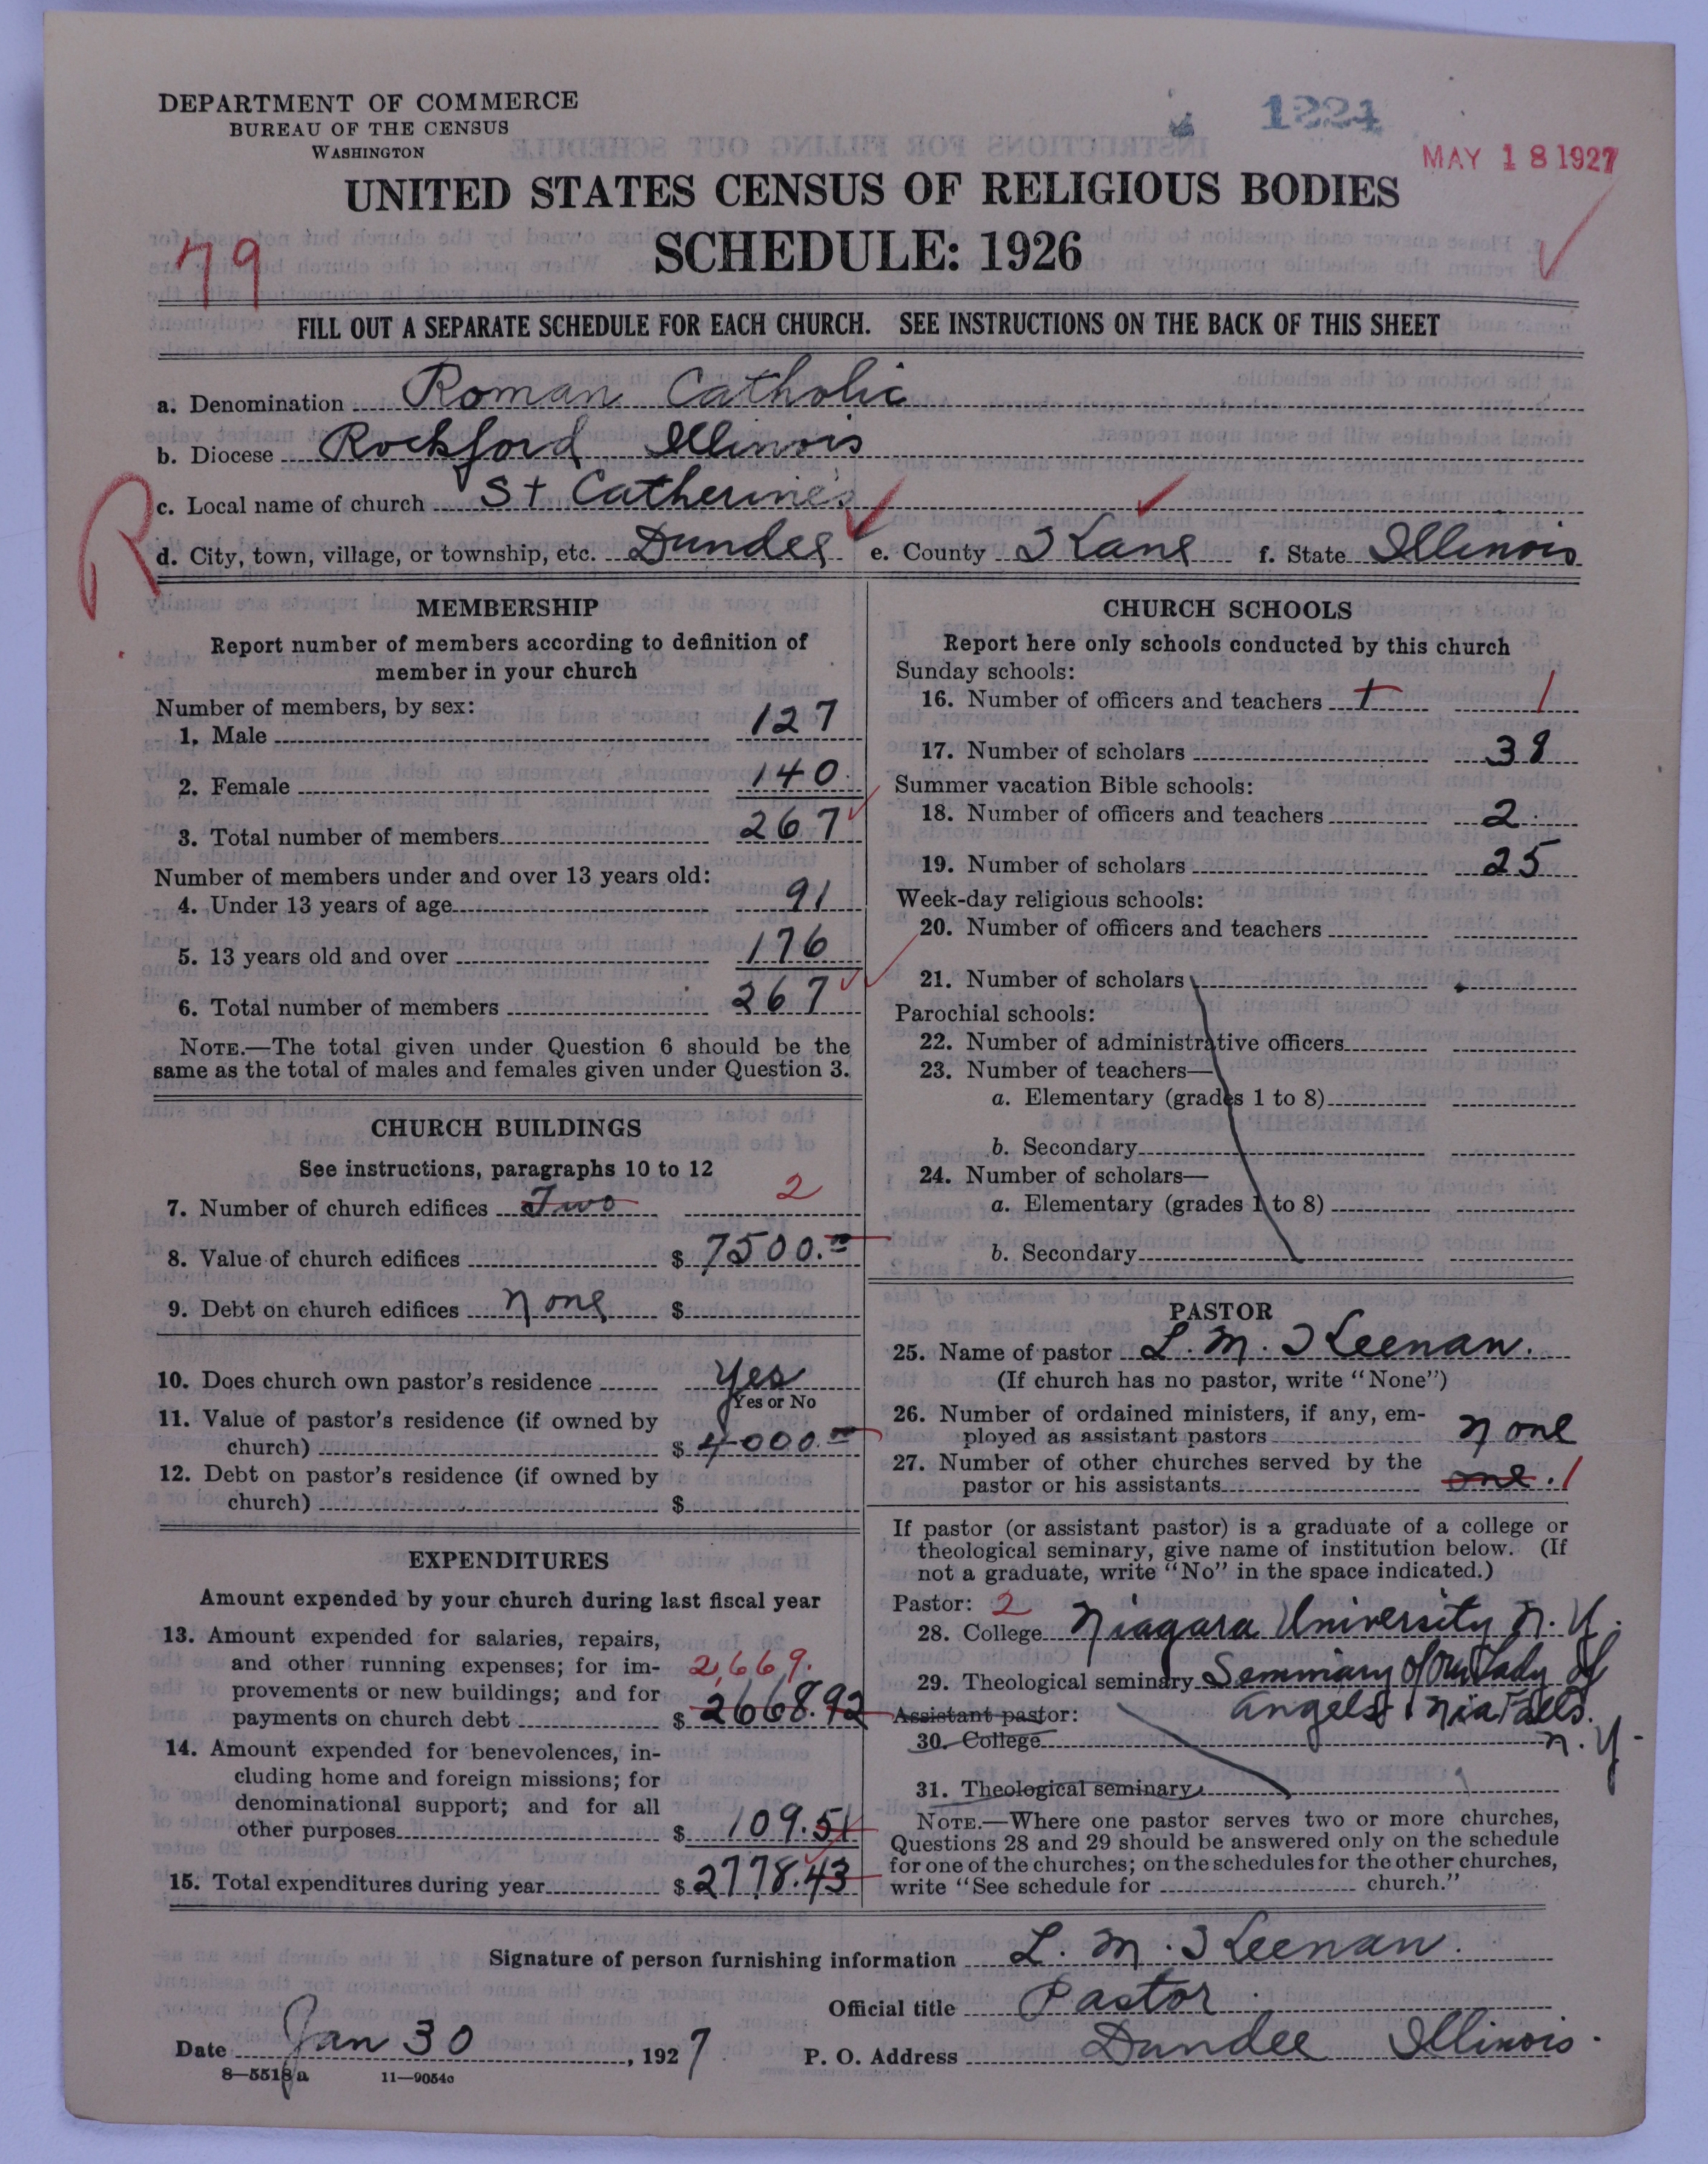 DEPARTMENT OF COMMERCE
BUREAU OF THE CENSUS
WASHINGTON
1224
MAY 18 1927
UNITED STATES CENSUS OF RELIGIOUS BODIES
SCHEDULE: 1926
79
FILL OUT A SEPARATE SCHEDULE FOR EACH CHURCH. SEE INSTRUCTIONS ON THE BACK OF THIS SHEET
a. Denomination Roman Catholic
b. Diocese Rockford Illinois
R
c. Local name of church St Catherine's
d. City, town, village, or township, etc. Dundee e. County Kane f. State Illinois
MEMBERSHIP
Report number of members according to definition of
member in your church
Number of members, by sex:
1. Male 127
2. Female 140.
3. Total number of members 267
Number of members under and over 13 years old:
4. Under 13 years of age 91
5. 13 years old and over 176
6. Total number of members 267
NOTE.—The total given under Question 6 should be the
same as the total of males and females given under Question 3.
CHURCH BUILDINGS
See instructions, paragraphs 10 to 12
7. Number of church edifices Two 2
8. Value of church edifices $ 7500.00
9. Debt on church edifices None $
10. Does church own pastor's residence Yes
Yes or No
11. Value of pastor's residence (if owned by
church) $ 4000.00
12. Debt on pastor's residence (if owned by
church) $
EXPENDITURES
Amount expended by your church during last fiscal year
13. Amount expended for salaries, repairs,
and other running expenses; for im- 2,669.
provements or new buildings; and for
payments on church debt $ 2668.92
14. Amount expended for benevolences, in-
cluding home and foreign missions; for
denominational support; and for all
other purposes $ 109.51
15. Total expenditures during year $ 2778.43
CHURCH SCHOOLS
Report here only schools conducted by this church
Sunday schools:
16. Number of officers and teachers 1 1
17. Number of scholars 38
Summer vacation Bible schools:
18. Number of officers and teachers 2.
19. Number of scholars 25
Week-day religious schools:
20. Number of officers and teachers
21. Number of scholars
Parochial schools:
22. Number of administrative officers
23. Number of teachers—
a. Elementary (grades 1 to 8)
b. Secondary
24. Number of scholars—
a. Elementary (grades 1 to 8)
b. Secondary
PASTOR
25. Name of pastor L. M. Keenan.
(If church has no pastor, write "None")
26. Number of ordained ministers, if any, em-
ployed as assistant pastors None
27. Number of other churches served by the
pastor or his assistants one. 1
If pastor (or assistant pastor) is a graduate of a college or
theological seminary, give name of institution below. (If
not a graduate, write "No" in the space indicated.)
Pastor: 2
28. College Niagara University N. Y.
29. Theological seminary Seminary of Our Lady of
Assistant pastor: Angels Nia Falls.
30. College N. Y.
31. Theological seminary
NOTE.—Where one pastor serves two or more churches,
Questions 28 and 29 should be answered only on the schedule
for one of the churches; on the schedules for the other churches,
write "See schedule for church."
Signature of person furnishing information L. M. Keenan.
Official title Pastor.
Date Jan 30, 1927
P. O. Address Dundee Illinois.
8—5518a 11—9054c